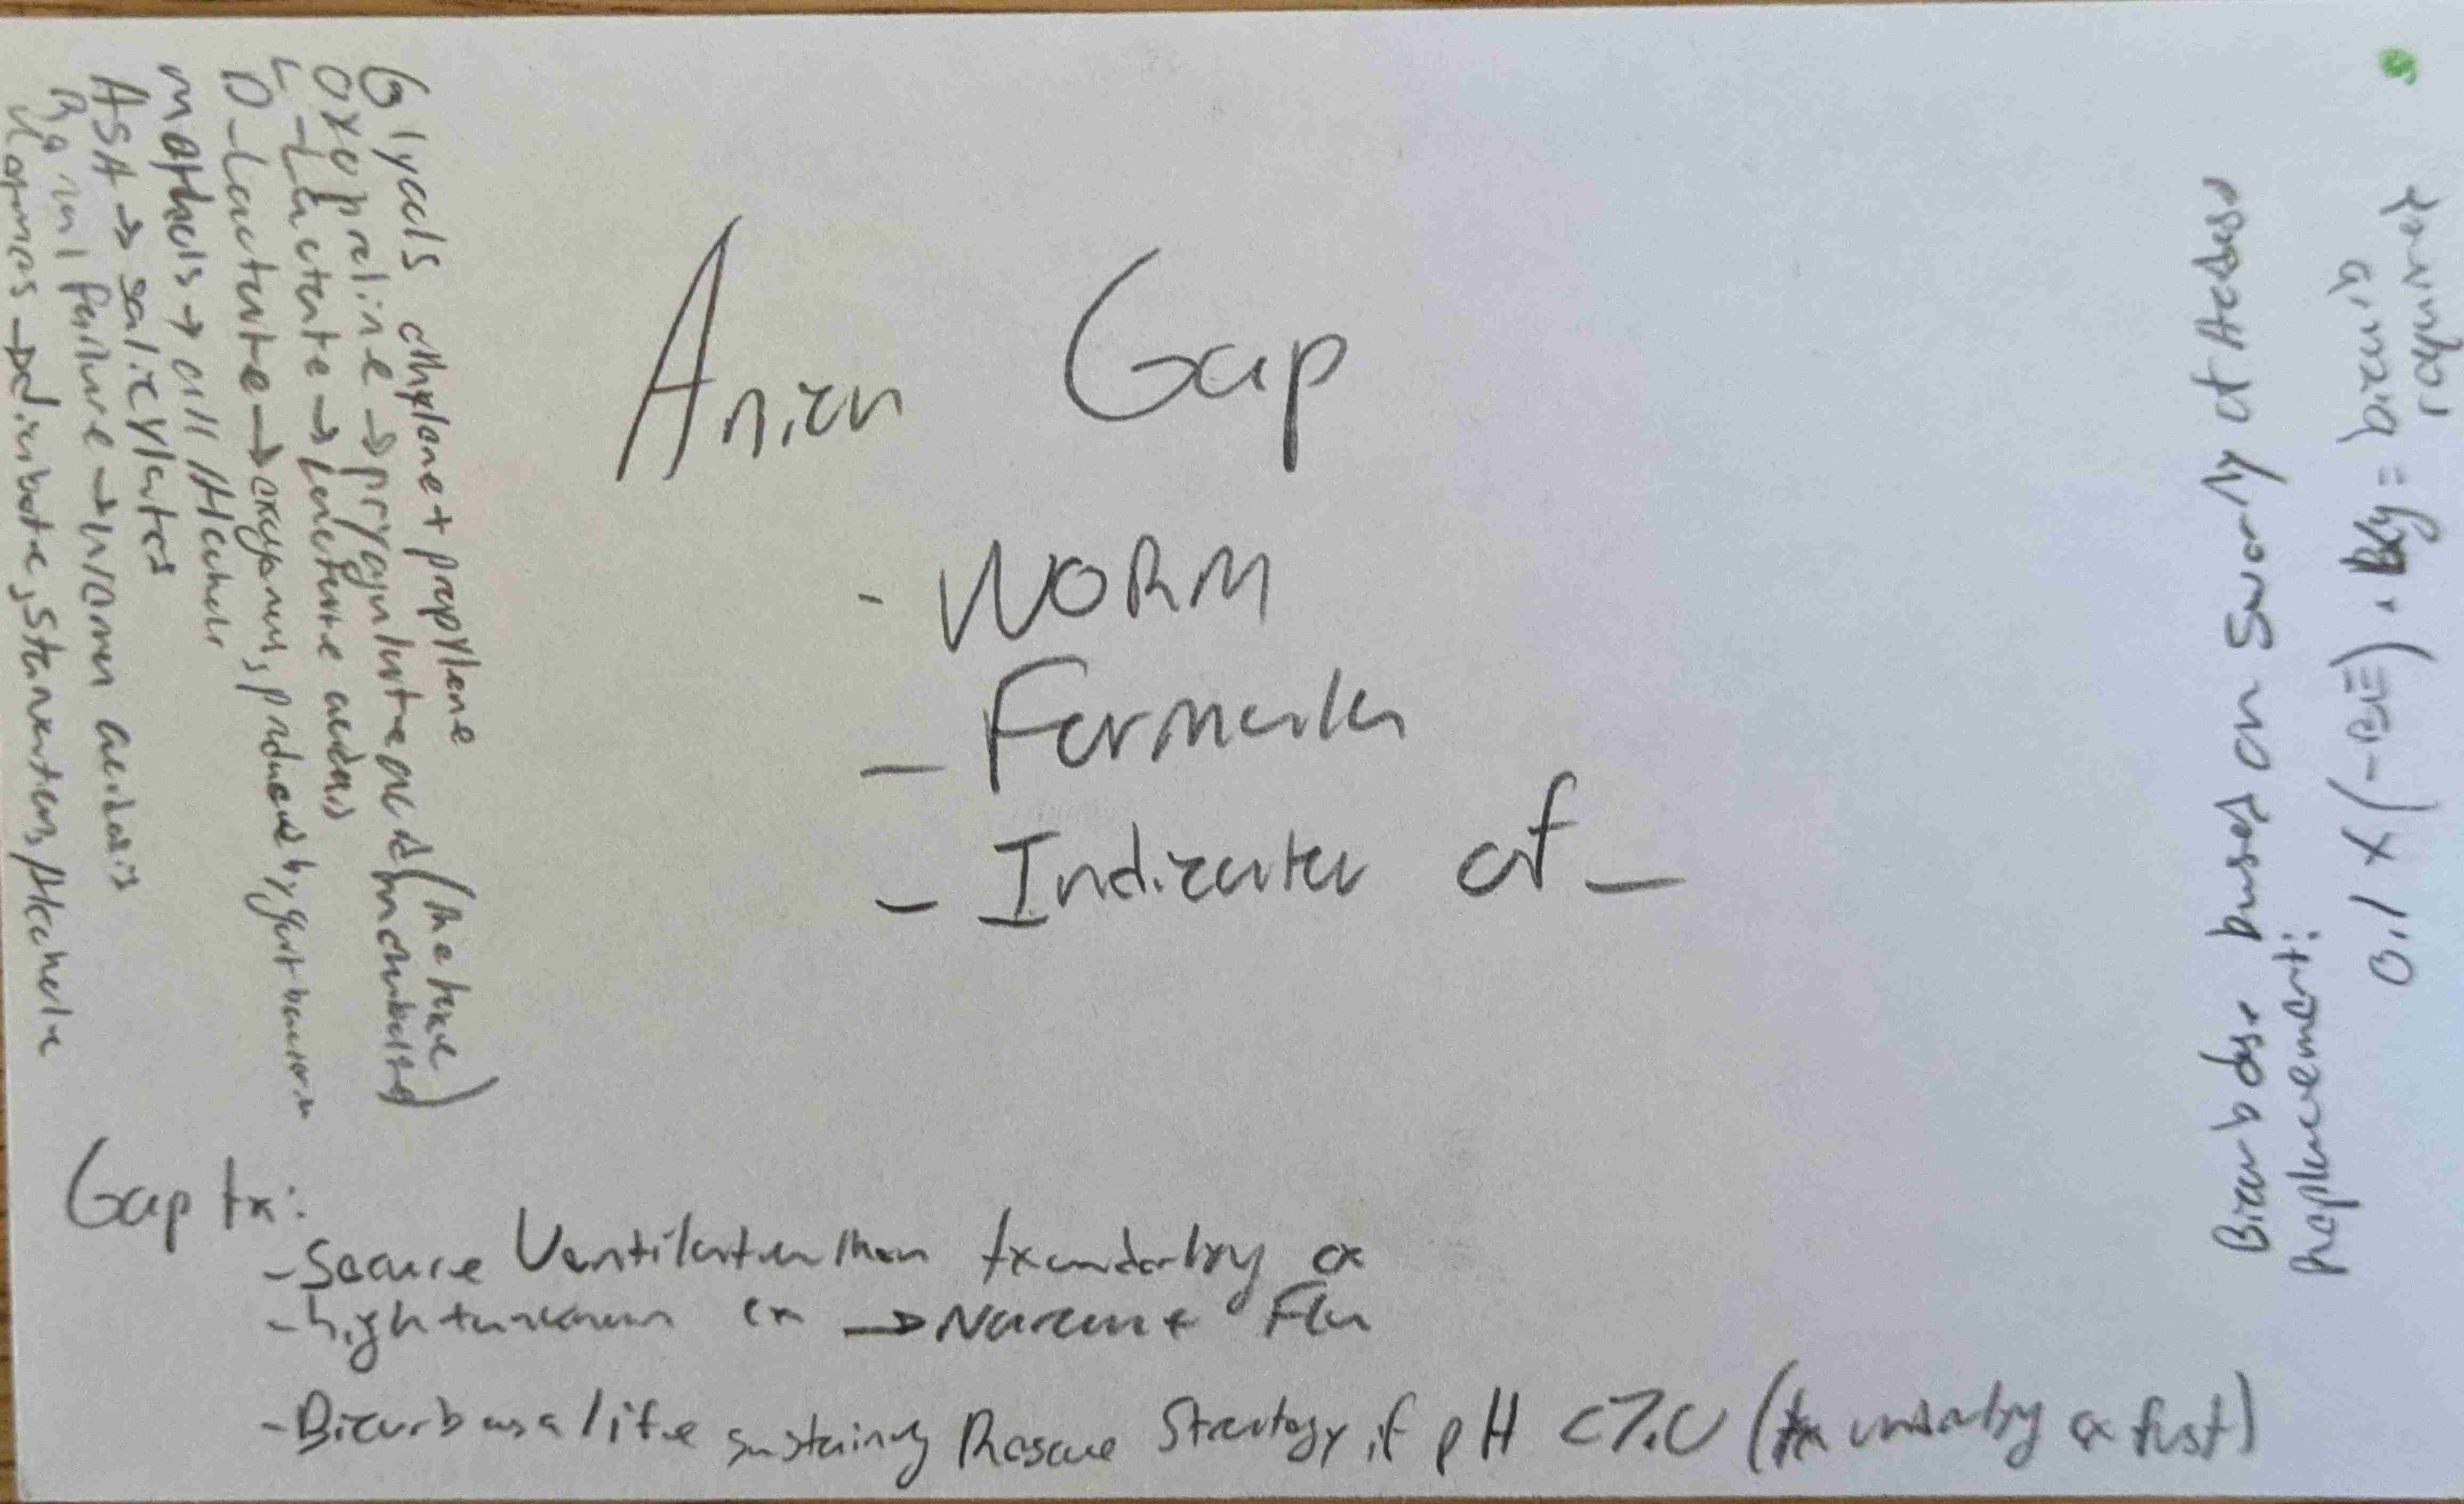 Anion Gap
- NORM
- Formula
- Indicator of _
Glycols ethylene + propylene
Oxoproline → pryoglutate acid (the toxic
L-Lactate → Lactate acidosis
D-Lactate → exogenous, produced by gut bacteria
methanols → all Alcohols
ASA → salicylates
Renal Failure → uremic acidosis
Ketones → Diabete, Starvation, Alcohol
Gap tx:
- Secure Ventilation then tx underlying
- high + unknown → Narcan + Flu
- Bicarb as a life sustaining Rescue Strategy if pH <7.0 (tx underlying first)
Bicarb dose bases on Severity of Acidosis
Replacement:
0.1 x (-BE) . Kg = bicarb
requirnet